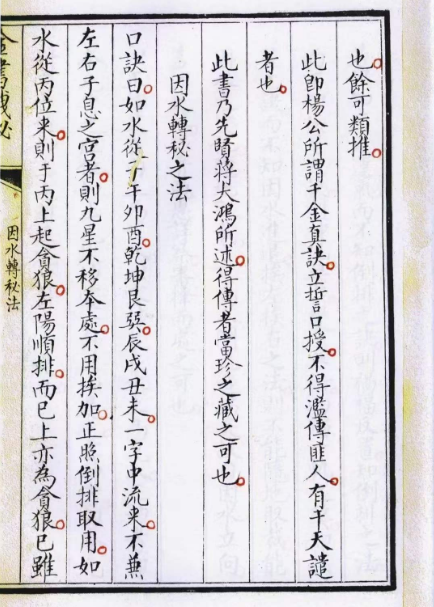 也餘可類推
此卽楊公所謂千金真訣立誓口授不得濫傳匪人有干天譴
者也
此書乃先賢蔣大鴻所述得傳者當珍之藏之可也
因水轉秘之法
口訣曰如水從子午卯酉乾坤艮巽辰戌丑未一字中流來不兼
左右子息之宮者則九星不移本處不用挨加正照倒排取用如
水從丙位來則于丙上起貪狼左陽順排而巳上亦為貪狼巳雖
金書秘
因水轉秘法